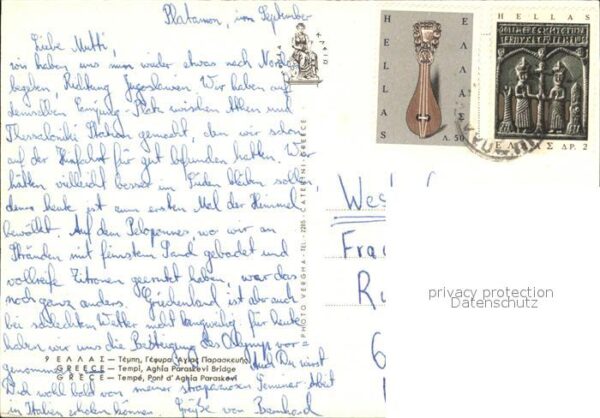 Platamon, im September
Liebe Mutti,
wir haben uns nun wieder etwas nach Norden
begeben, Richtung Jugoslawien. Wir haben auf
demselben Camping-Platz zwischen Athen und
Thessaloniki Station gemacht, den wir schon
auf der Hinfahrt für gut befunden hatten. Wir
hätten vielleicht besser im Süden bleiben sollen,
denn heute ist zum ersten Mal der Himmel
bewölkt. Auf dem Peloponnes, wo wir an
Stränden mit feinstem Sand gebadet und
vollreife Zitronen geerntet haben, war das
noch ganz anders. Griechenland ist aber auch
bei schlechtem Wetter nicht langweilig, für heute
haben wir uns die Besteigung des Olymp vor-
genommen. Und Du wirst
Dich wohl bald von meiner strapaziösen Seminar-Arbeit
in Italien erholen können. Grüße von Bernhard
9 ΕΛΛΑΣ — Τέμπη, Γέφυρα Ἁγίας Παρασκευῆς
GREECE — Tempi, Aghia Paraskevi Bridge
GRECE — Tempé, Pont d'Aghia Paraskevi
PHOTO VERGHA - TEL. 2295 - CATERINI - GREECE
HELLAS
ΕΛΛΑΣ
Λ. 50
HELLAS
ΕΛΛΑΣ ΔΡ. 2
Wes
Fra
Ru
6
privacy protection
Datenschutz